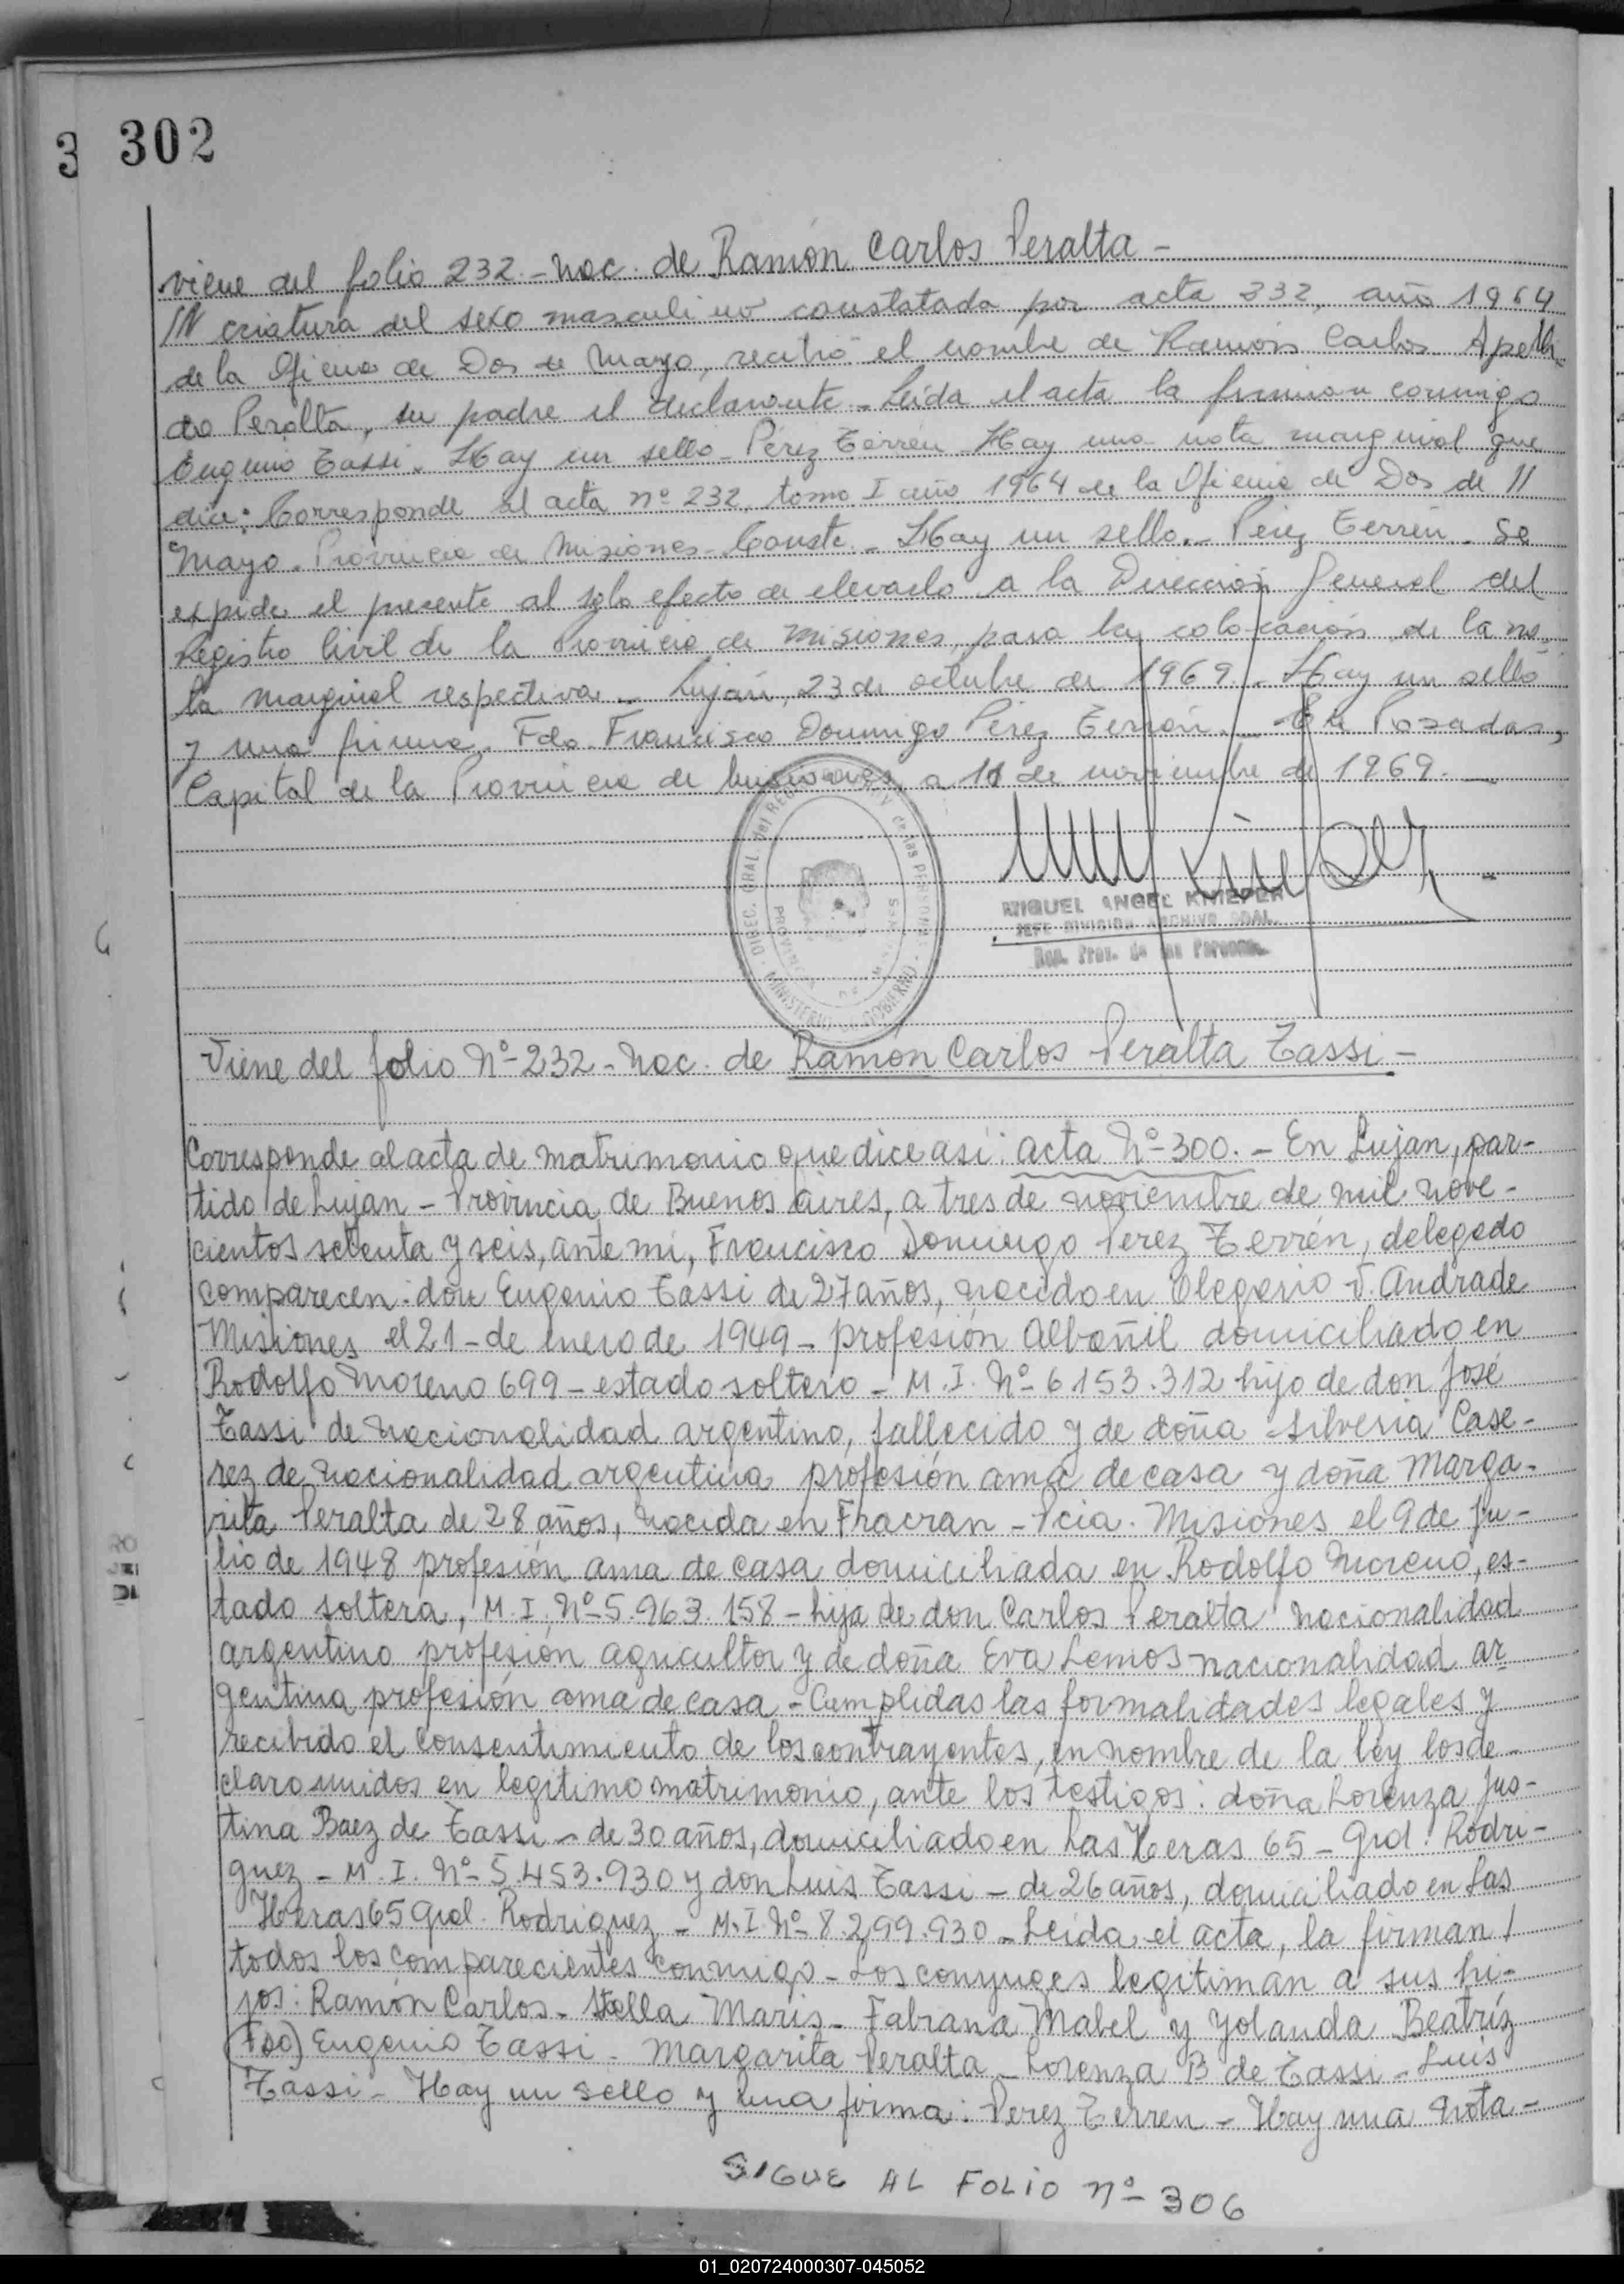 3 302
viene del folio 232 - Nac. de Ramón Carlos Peralta -
criatura del sexo masculino constatada por acta 232, año 1964
de la Oficina de Dos de Mayo, recibió el nombre de Ramón Carlos Apelli-
do Peralta, su padre el declarante - Leída el acta la firman conmigo
Eugenio Tassi. Hay un sello - Pérez Terrén - Hay una nota marginal que
dice: Corresponde al acta nº 232, tomo I año 1964 de la Oficina de Dos de //
Mayo. Provincia de Misiones - Conste. - Hay un sello. - Pérez Terrén. Se
expide el presente al solo efecto de elevarlo a la Dirección General del
Registro Civil de la Provincia de Misiones, para la colocación de la no-
ta marginal respectiva. - Luján, 23 de octubre de 1969. - Hay un sello
y una firma. Fdo. Francisco Domingo Pérez Terrén. - En Posadas,
Capital de la Provincia de Misiones, a 11 de noviembre de 1969. -
DIREC. GRAL. del REG. de las PERSONAS
PROVINCIA DE MISIONES
MINISTERIO DE GOBIERNO
MIGUEL ANGEL KNIEPER
JEFE DIVISION ARCHIVO GRAL.
Reg. Prov. de las Personas
Viene del folio Nº 232 - Nac. de Ramón Carlos Peralta Tassi -
Corresponde al acta de matrimonio que dice así: acta Nº 300. - En Lujan, par-
tido de Lujan - Provincia de Buenos Aires, a tres de noviembre de mil nove-
cientos setenta y seis, ante mi, Francisco Domingo Perez Terrén, delegado
comparecen: don Eugenio Tassi de 27 años, nacido en Olegario V. Andrade
Misiones el 21 - de enero de 1949 - profesión Albañil domiciliado en
Rodolfo Moreno 699 - estado soltero - M. I. Nº 6.153.312 hijo de don José
Tassi de nacionalidad argentino, fallecido y de doña Silveria Case-
rez de nacionalidad argentina profesión ama de casa y doña Marga-
rita Peralta de 28 años, nacida en Fracran - Pcia. Misiones el 9 de Ju-
lio de 1948 profesión ama de casa domiciliada en Rodolfo Moreno, es-
tado soltera, M. I. Nº 5.963.158 - hija de don Carlos Peralta nacionalidad
argentino profesión agricultor y de doña Eva Lemos nacionalidad ar
gentina profesión ama de casa - Cumplidas las formalidades legales y
recibido el consentimiento de los contrayentes, en nombre de la ley los de-
claro unidos en legitimo matrimonio, ante los testigos: doña Lorenza Jus-
tina Baez de Tassi - de 30 años, domiciliado en Las Heras 65 - Gral. Rodri-
guez - M. I. Nº 5.453.930 y don Luis Tassi - de 26 años, domiciliado en Las
Heras 65 Gral. Rodriguez - M. I. Nº 8.299.930 - Leída el acta, la firman /
todos los comparecientes conmigo - Los conyuges legitiman a sus hi-
jos: Ramón Carlos - Stella Maris - Fabiana Mabel y Yolanda Beatríz
(Fdo) Eugenio Tassi - Margarita Peralta - Lorenza B de Tassi - Luis
Tassi - Hay un sello y una firma: Perez Terren - Hay una nota -
SIGUE AL FOLIO nº 306
01_020724000307-045052